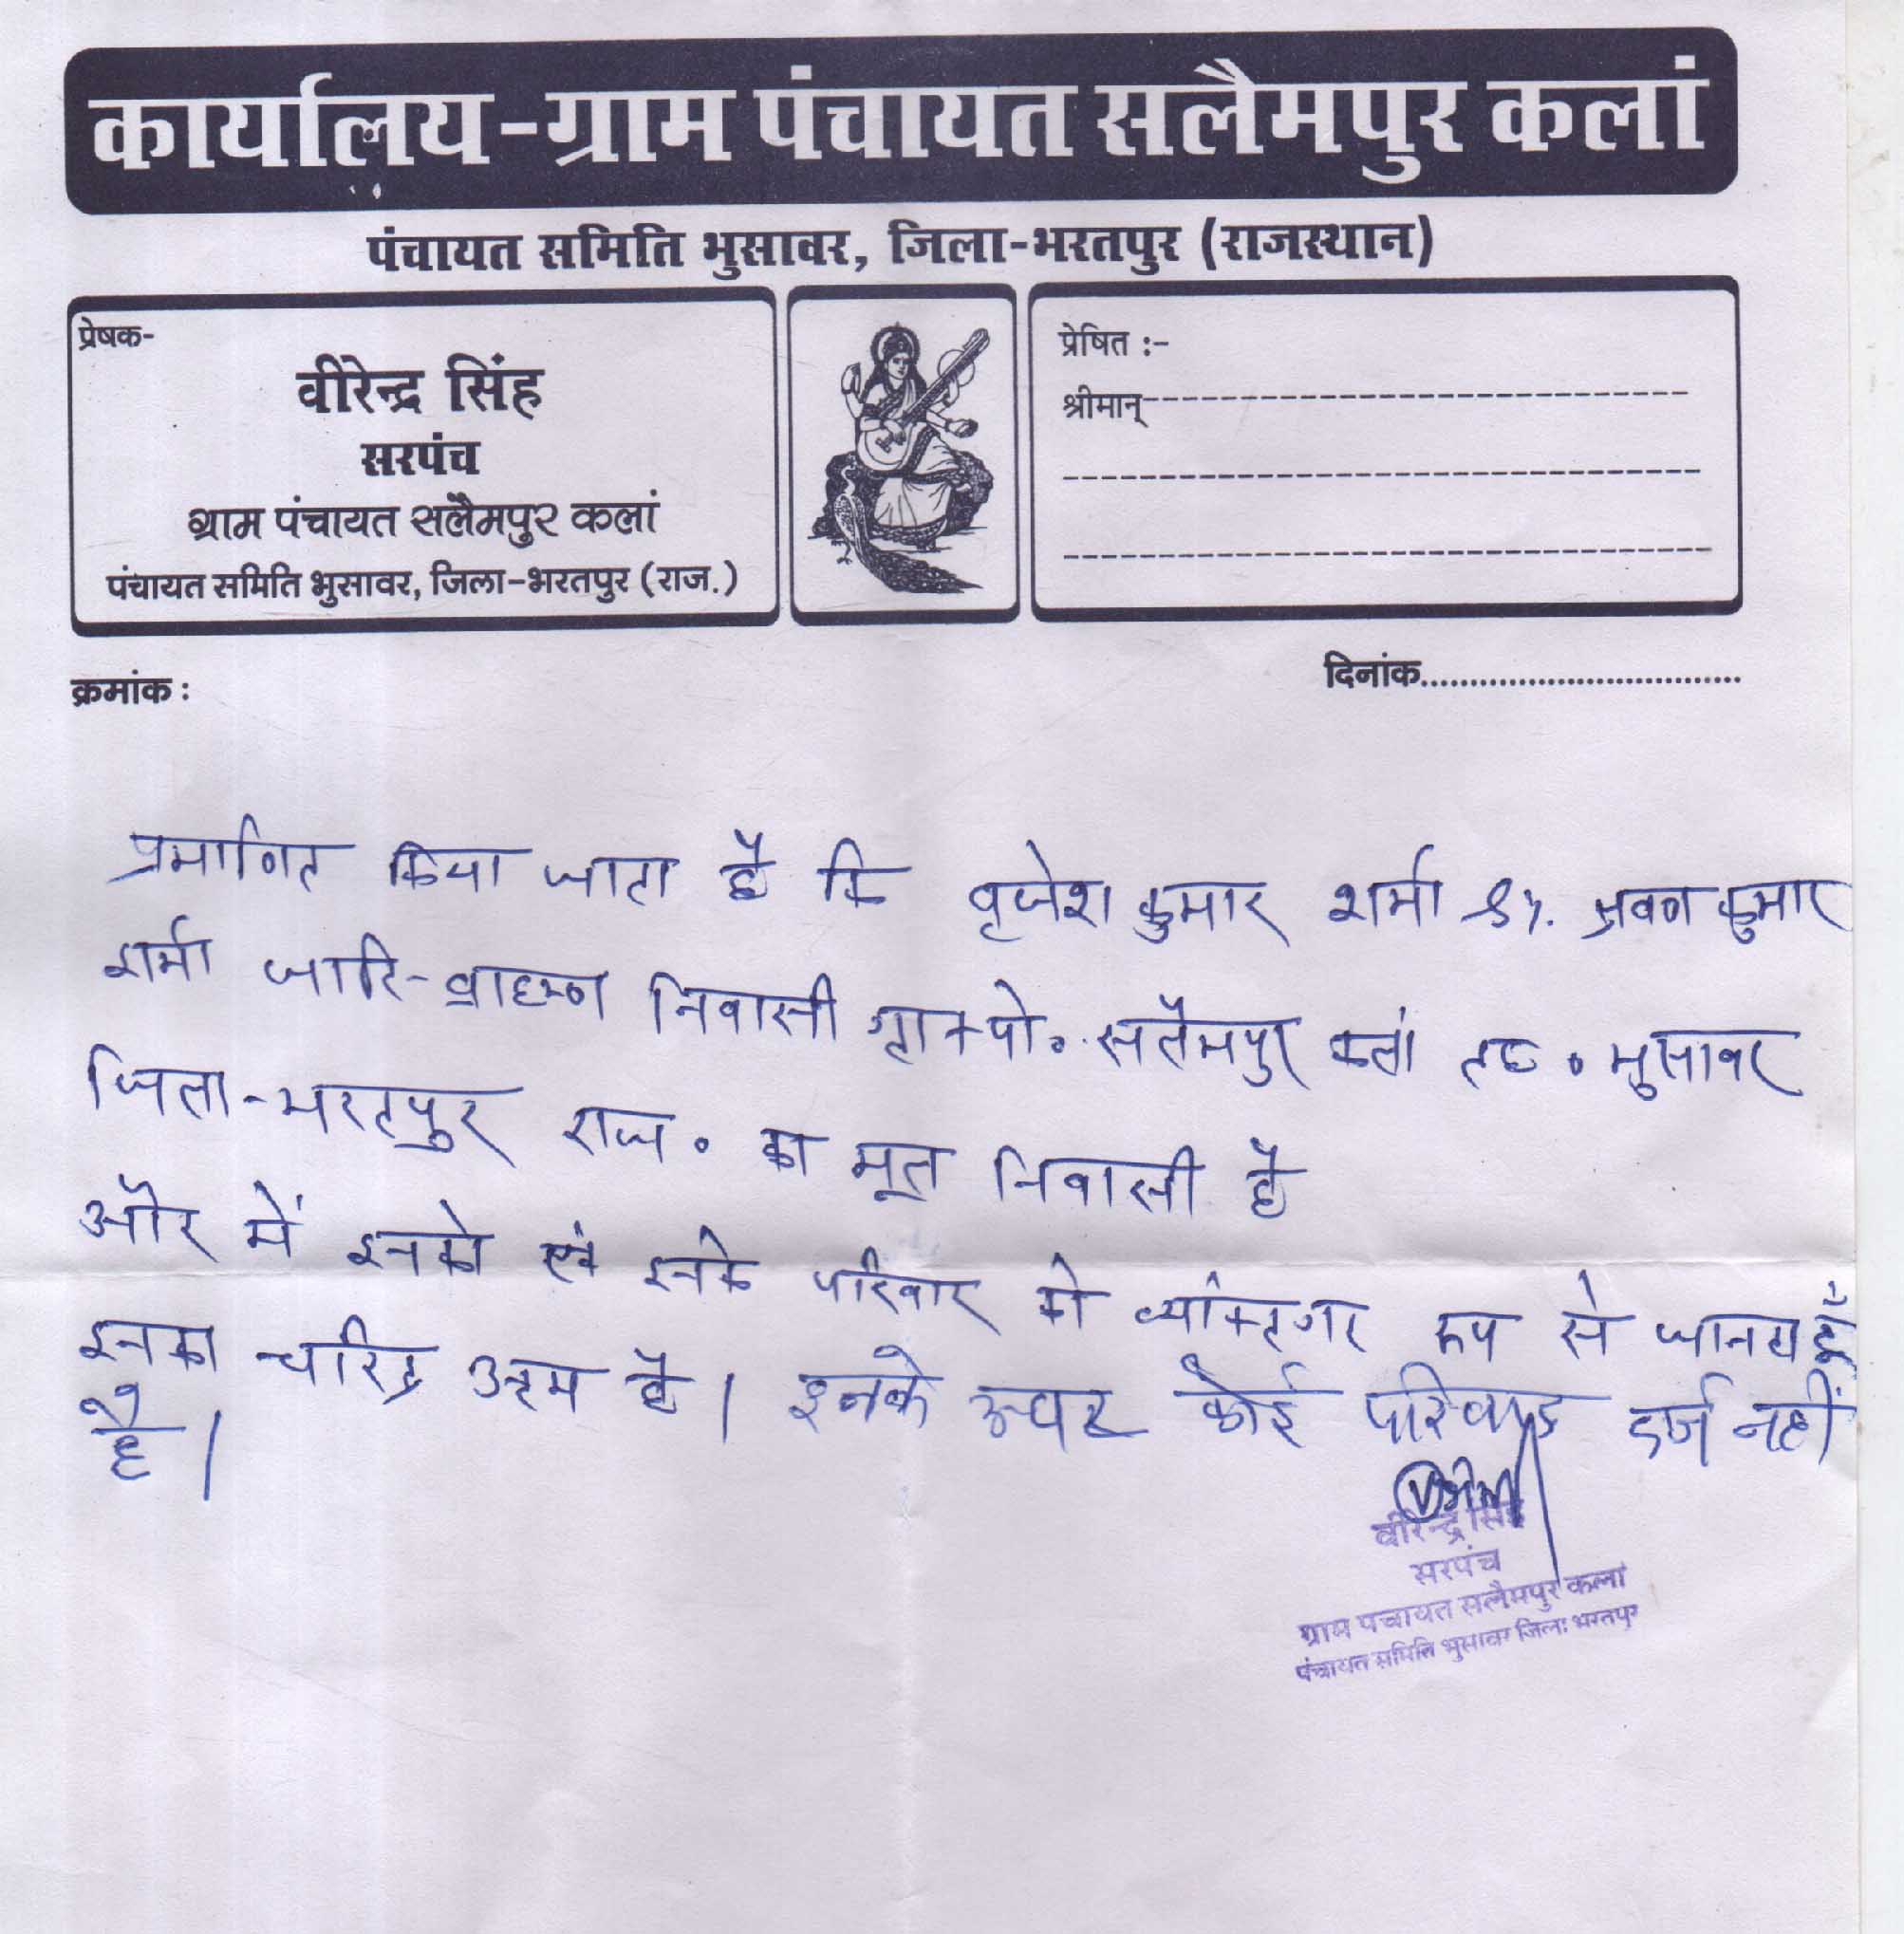 कार्यालय-ग्राम पंचायत सलैमपुर कलां
पंचायत समिति भुसावर, जिला-भरतपुर (राजस्थान)
प्रेषक-
वीरेन्द्र सिंह
सरपंच
ग्राम पंचायत सलैमपुर कलां
पंचायत समिति भुसावर, जिला-भरतपुर (राज.)
प्रेषित :-
श्रीमान्
क्रमांक :
दिनांक
प्रमाणित किया जाता है कि बृजेश कुमार शर्मा S/. श्रवण कुमार
शर्मा जाति-ब्राह्मण निवासी पो॰ सलैमपुर कलां तह॰ भुसावर
जिला-भरतपुर राज॰ का मूल निवासी है
और में इनको एवं इनके परिवार को व्यक्तिगत रूप से जानता हूँ
इनका चरित्र उत्तम है। इनके ऊपर कोई परिवाद दर्ज नहीं
है।
वीरेन्द्र सिंह
सरपंच
ग्राम पंचायत सलैमपुर कलां
पंचायत समिति भुसावर जिला भरतपुर